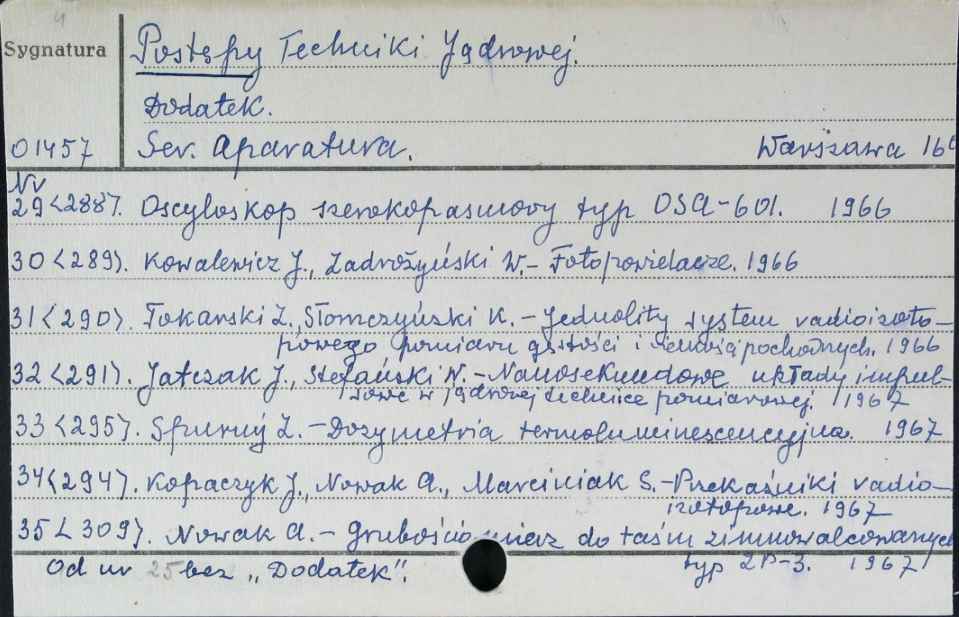 Sygnatura
Postępy Techniki Jądrowej.
Dodatek.
01457 Ser. Aparatura. Warszawa
Nr
29<288>. Oscyloskop szerokopasmowy typ OSA-601. 1966
30<289>. Kowalewicz J., Zadrożyński W.- Fotopowielacze. 1966
31<290>. Tokarski Z., Słomczyński K.- Jednolity system radioizoto-
powego pomiaru gęstości i pochodnych. 1966
32<291>. Jatczak J., Stefański W.- Nanosekundowe układy impul-
sowe w jądrowej technice pomiarowej. 1967
33<295>. Spurný Z.- Dozymetria termoluminescencyjna. 1967
34<294>. Kopaczyk J., Nowak A., Marciniak S.- Przekaźniki radio-
izotopowe. 1967
35<309>. Nowak A.- Grubościomierz do taśm zimnowalcowanych
typ 2P-3. 1967
Od nr 25 bez "Dodatek".